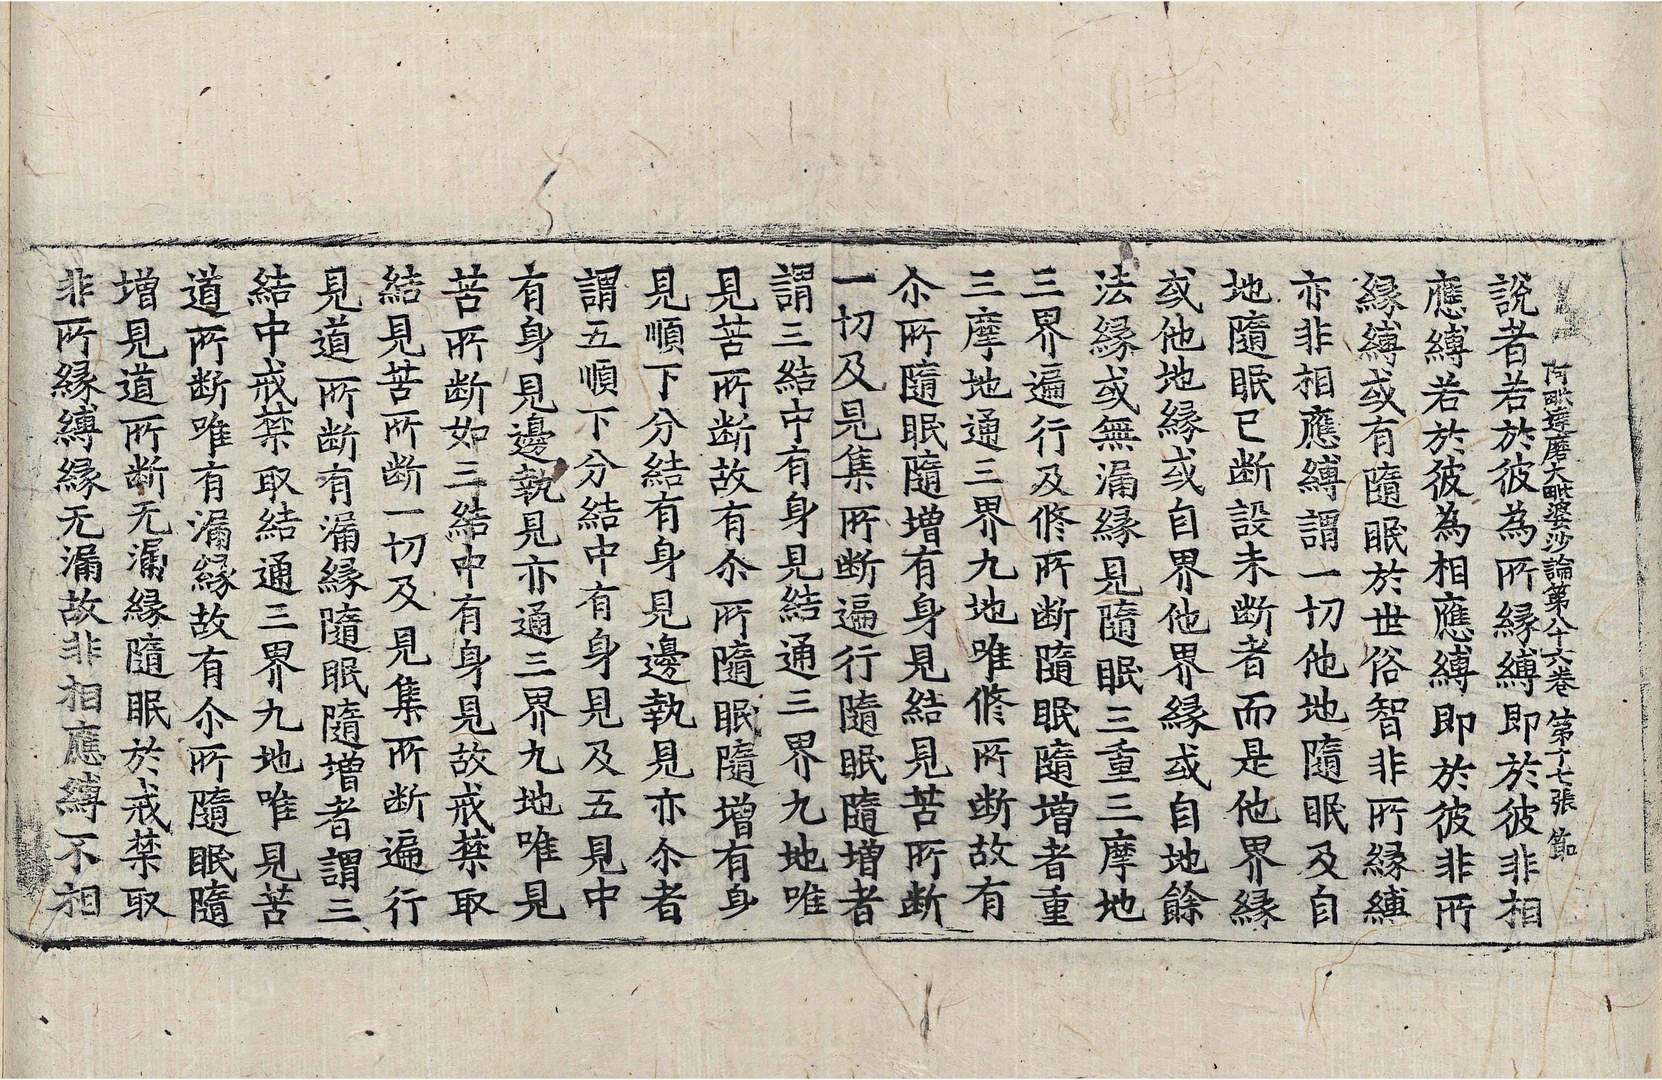 阿毗達磨大毗婆沙論第八十六卷 第十七張 節
說者若於彼為所緣縛即於彼非相
應縛若於彼為相應縛即於彼非所
緣縛或有隨眠於世俗智非所緣縛
亦非相應縛謂一切他地隨眠及自
地隨眠已断設未断者而是他界緣
或他地緣或自界他界緣或自地餘
法緣或無漏緣見隨眠三重三摩地
三界遍行及修所断隨眠隨增者重
三摩地通三界九地唯修所断故有
尒所隨眠隨增有身見結見苦所断
一切及見集所断遍行隨眠隨增者
謂三結中有身見結通三界九地唯
見苦所断故有尒所隨眠隨增有身
見順下分結有身見邊執見亦尒者
謂五順下分結中有身見及五見中
有身見邊執見亦通三界九地唯見
苦所断如三結中有身見故戒禁取
結見苦所断一切及見集所断遍行
見道所断有漏緣隨眠隨增者謂三
結中戒禁取結通三界九地唯見苦
道所断唯有漏緣故有尒所隨眠隨
增見道所断无漏緣隨眠於戒禁取
非所緣縛緣无漏故非相應縛不相